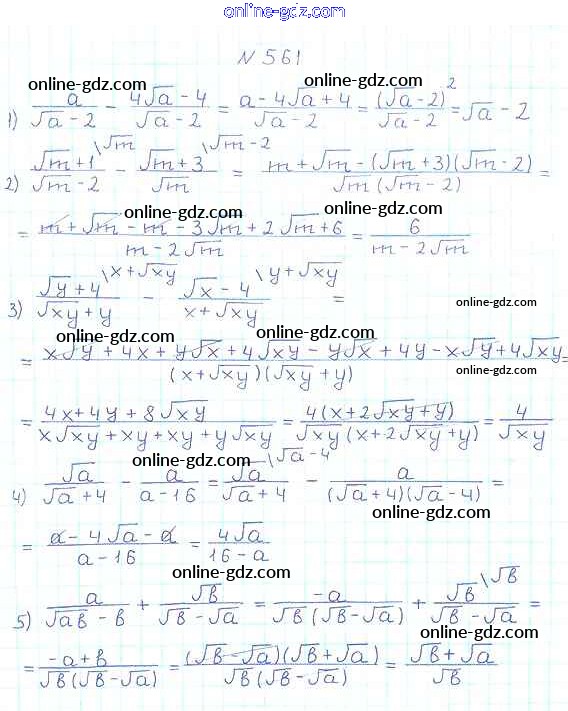 online-gdz.com
N 561
online-gdz.com online-gdz.com
1) a/(√a - 2) - (4√a - 4)/(√a - 2) = (a - 4√a + 4)/(√a - 2) = (√a - 2)²/(√a - 2) = √a - 2
2) (√m + 1)/(√m - 2) \√m - (√m + 3)/√m \√m - 2 = (m + √m - (√m + 3)(√m - 2))/(√m (√m - 2)) =
online-gdz.com online-gdz.com
= (m + √m - m - 3√m + 2√m + 6)/(m - 2√m) = 6/(m - 2√m)
3) (√y + 4)/(√xy + y) \x + √xy - (√x - 4)/(x + √xy) \y + √xy =
online-gdz.com
online-gdz.com online-gdz.com
= (x√y + 4x + y√x + 4√xy - y√x + 4y - x√y + 4√xy)/((x + √xy)(√xy + y)) =
online-gdz.com
= (4x + 4y + 8√xy)/(x√xy + xy + xy + y√xy) = 4(x + 2√xy + y)/(√xy (x + 2√xy + y)) = 4/√xy
online-gdz.com
4) √a/(√a + 4) - a/(a - 16) = √a/(√a + 4) \√a - 4 - a/((√a + 4)(√a - 4)) =
online-gdz.com
= (a - 4√a - a)/(a - 16) = 4√a/(16 - a)
online-gdz.com
5) a/(√ab - b) + √b/(√b - √a) = -a/(√b (√b - √a)) + √b/(√b - √a) \√b =
online-gdz.com
= (-a + b)/(√b (√b - √a)) = (√b - √a)(√b + √a)/(√b (√b - √a)) = (√b + √a)/√b
online-gdz.com